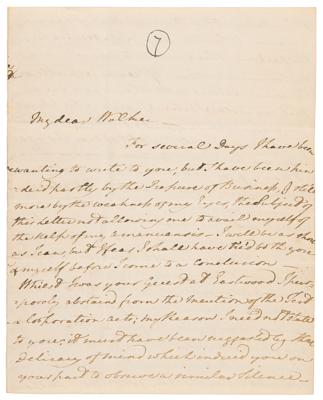 7
My dear Walker
For several days I have been
wanting to write to you, but I have been hin
dered partly by the pressure of Business, & still
more by the weakness of my Eyes, the Subject of
this letter not allowing me to avail myself of
the help of my amanuensis. I will be as short
as I can, but I fear I shall have tired both you
& myself before I come to a conclusion
Whilst I was your guest at Eastwood I pur
posely abstain from the mention of the Test
& Corporation acts; my Reason I need not state
to you; it must have been suggested by that
Delicacy of mind which induced you on
your part to observe a similar silence